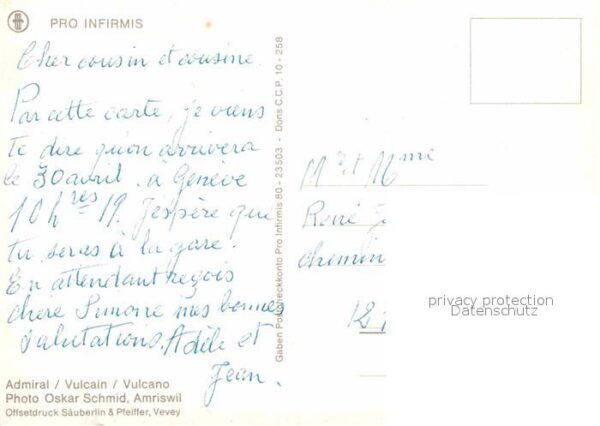 PRO INFIRMIS
Cher cousin et cousine.
Par cette carte, je viens
te dire qu'on arrivera
le 30 avril. à Genève
10 hres 19. J'espère que
tu seras à la gare.
En attendant reçois
chère Simone mes bonnes
salutations. Adèle et
Jean.
Admiral / Vulcain / Vulcano
Photo Oskar Schmid, Amriswil
Offsetdruck Säuberlin & Pfeiffer, Vevey
Gaben Postcheckkonto Pro Infirmis 80 - 23503 - Dons C.C.P. 10 - 258
Mr et Mme
René
chemin
privacy protection
Datenschutz